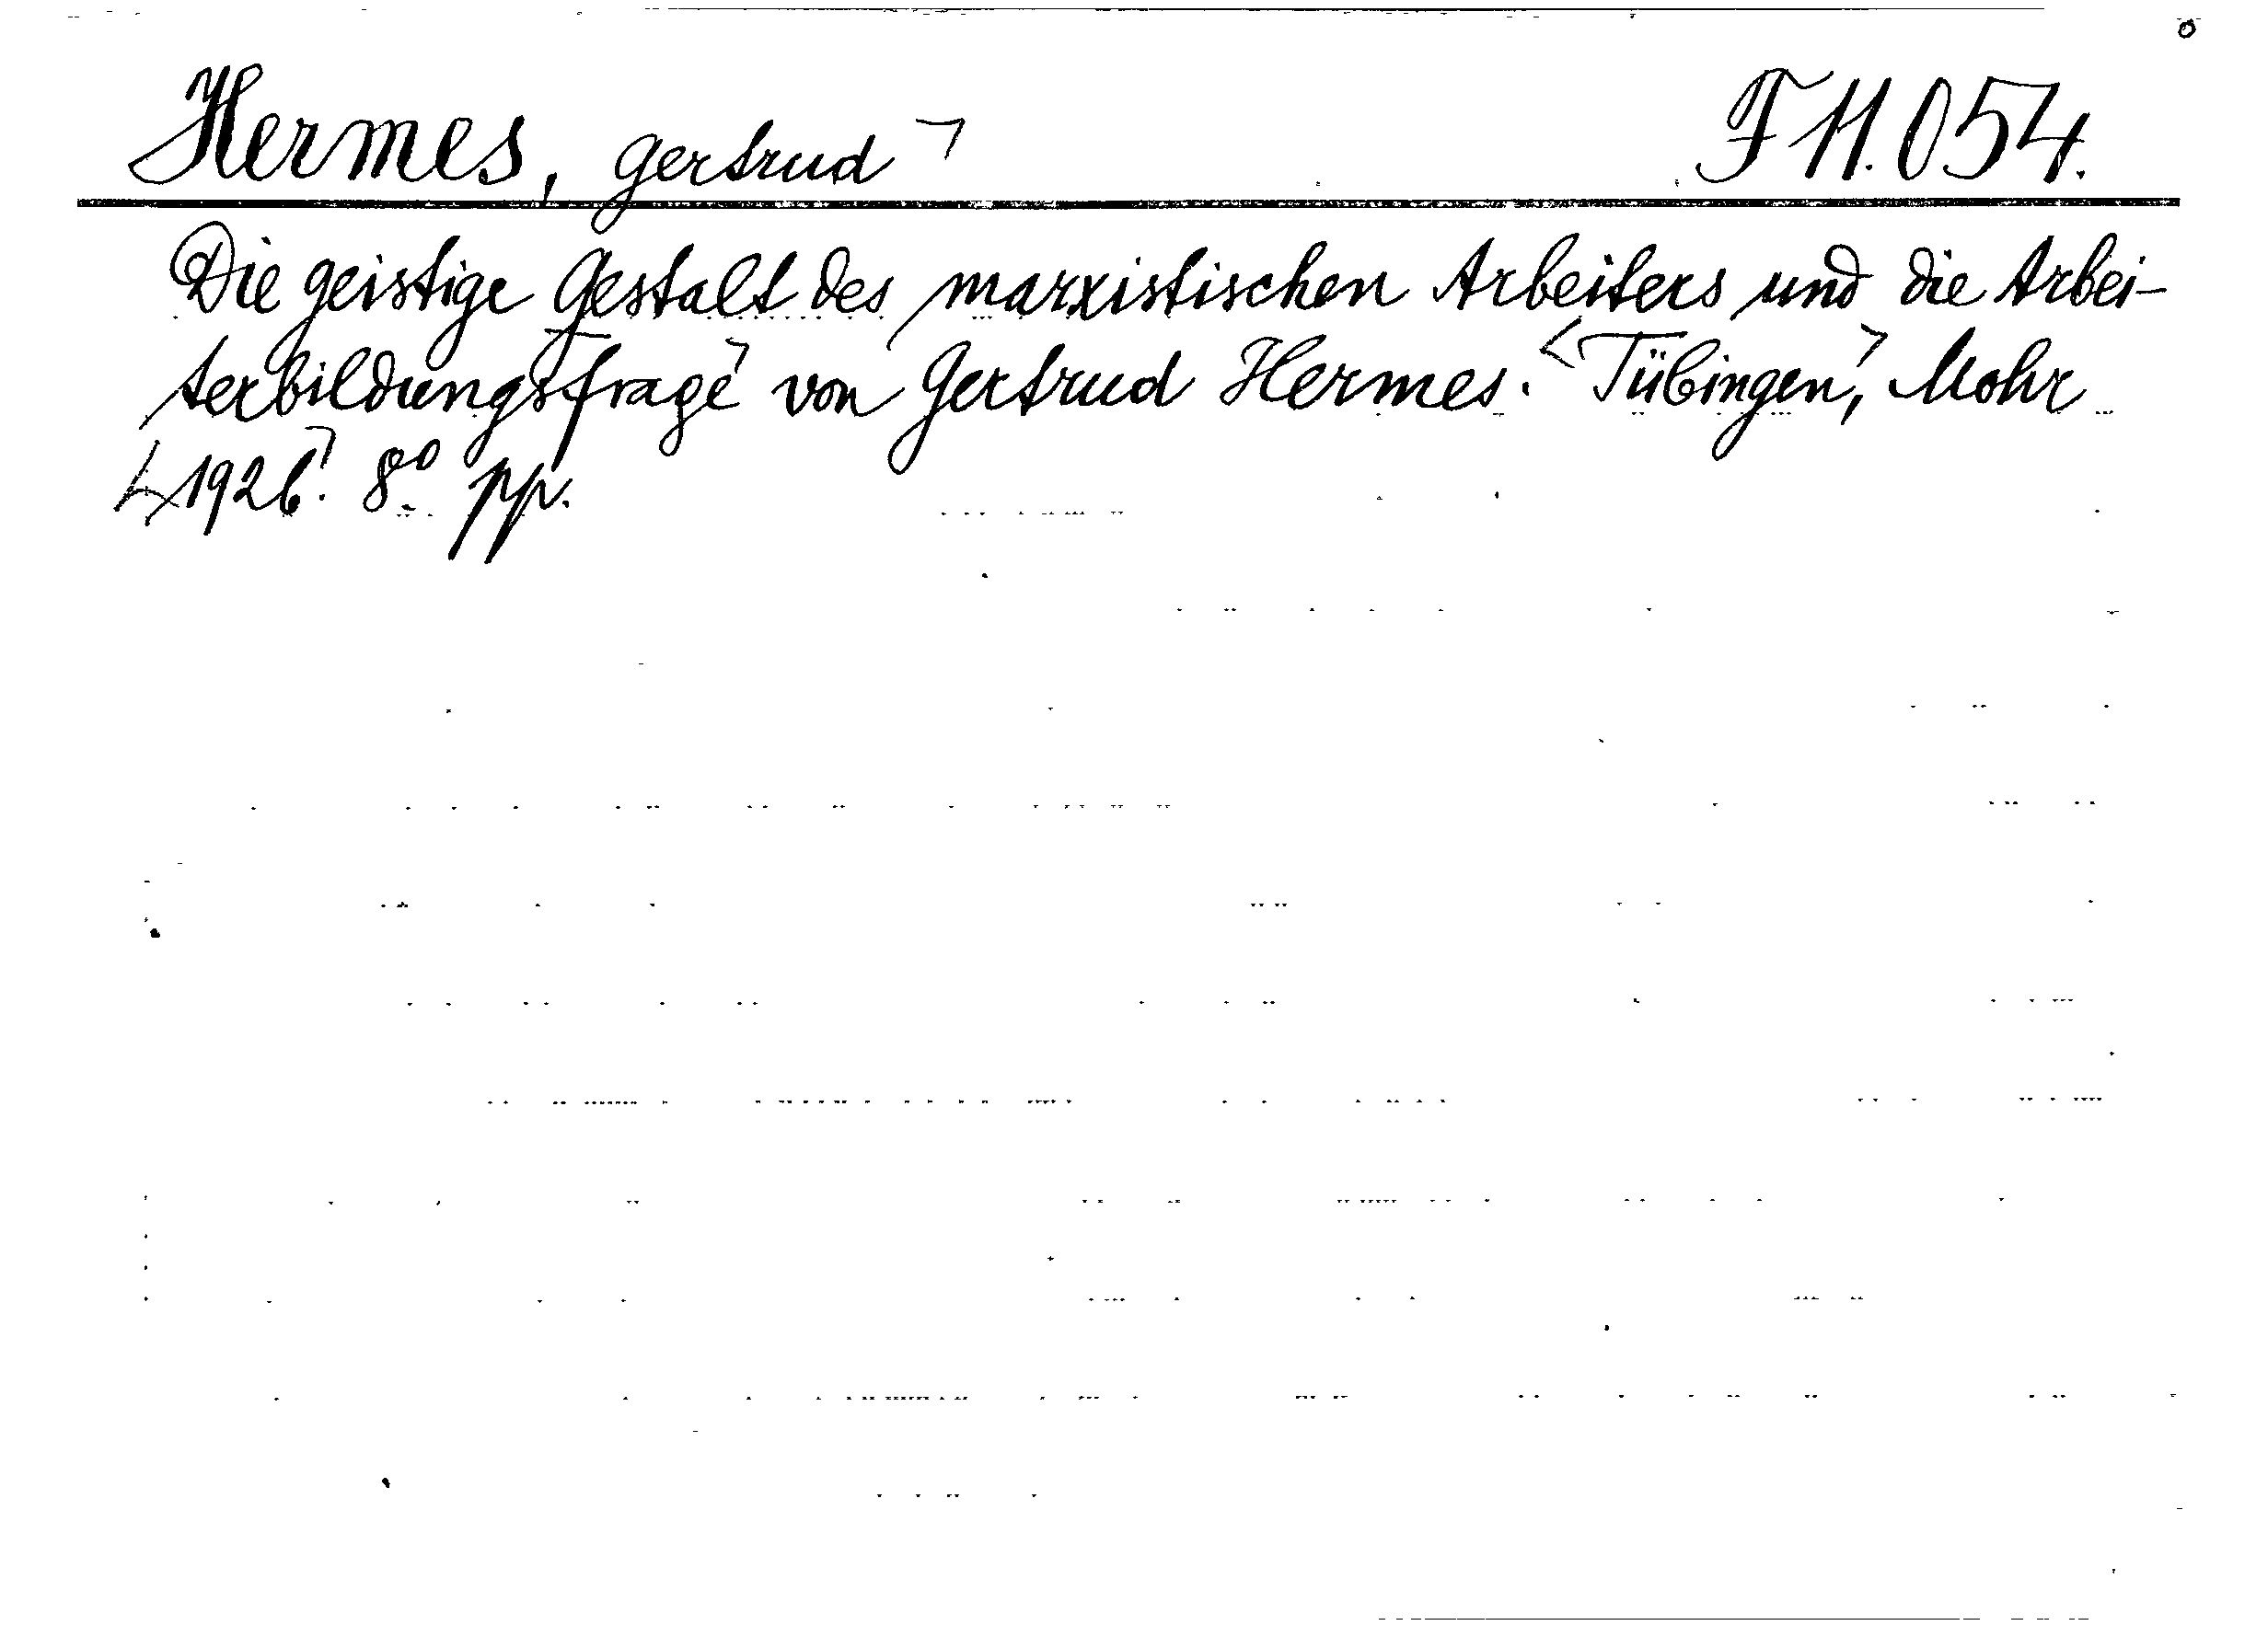 Hermes, Gertrud ┐ F 11.054.
Die geistige Gestalt des marxistischen Arbeiters und die Arbei-
terbildungsfrage ┐ von Gertrud Hermes. <Tübingen,> Mohr
└ 1926 ┐. 8° pp.